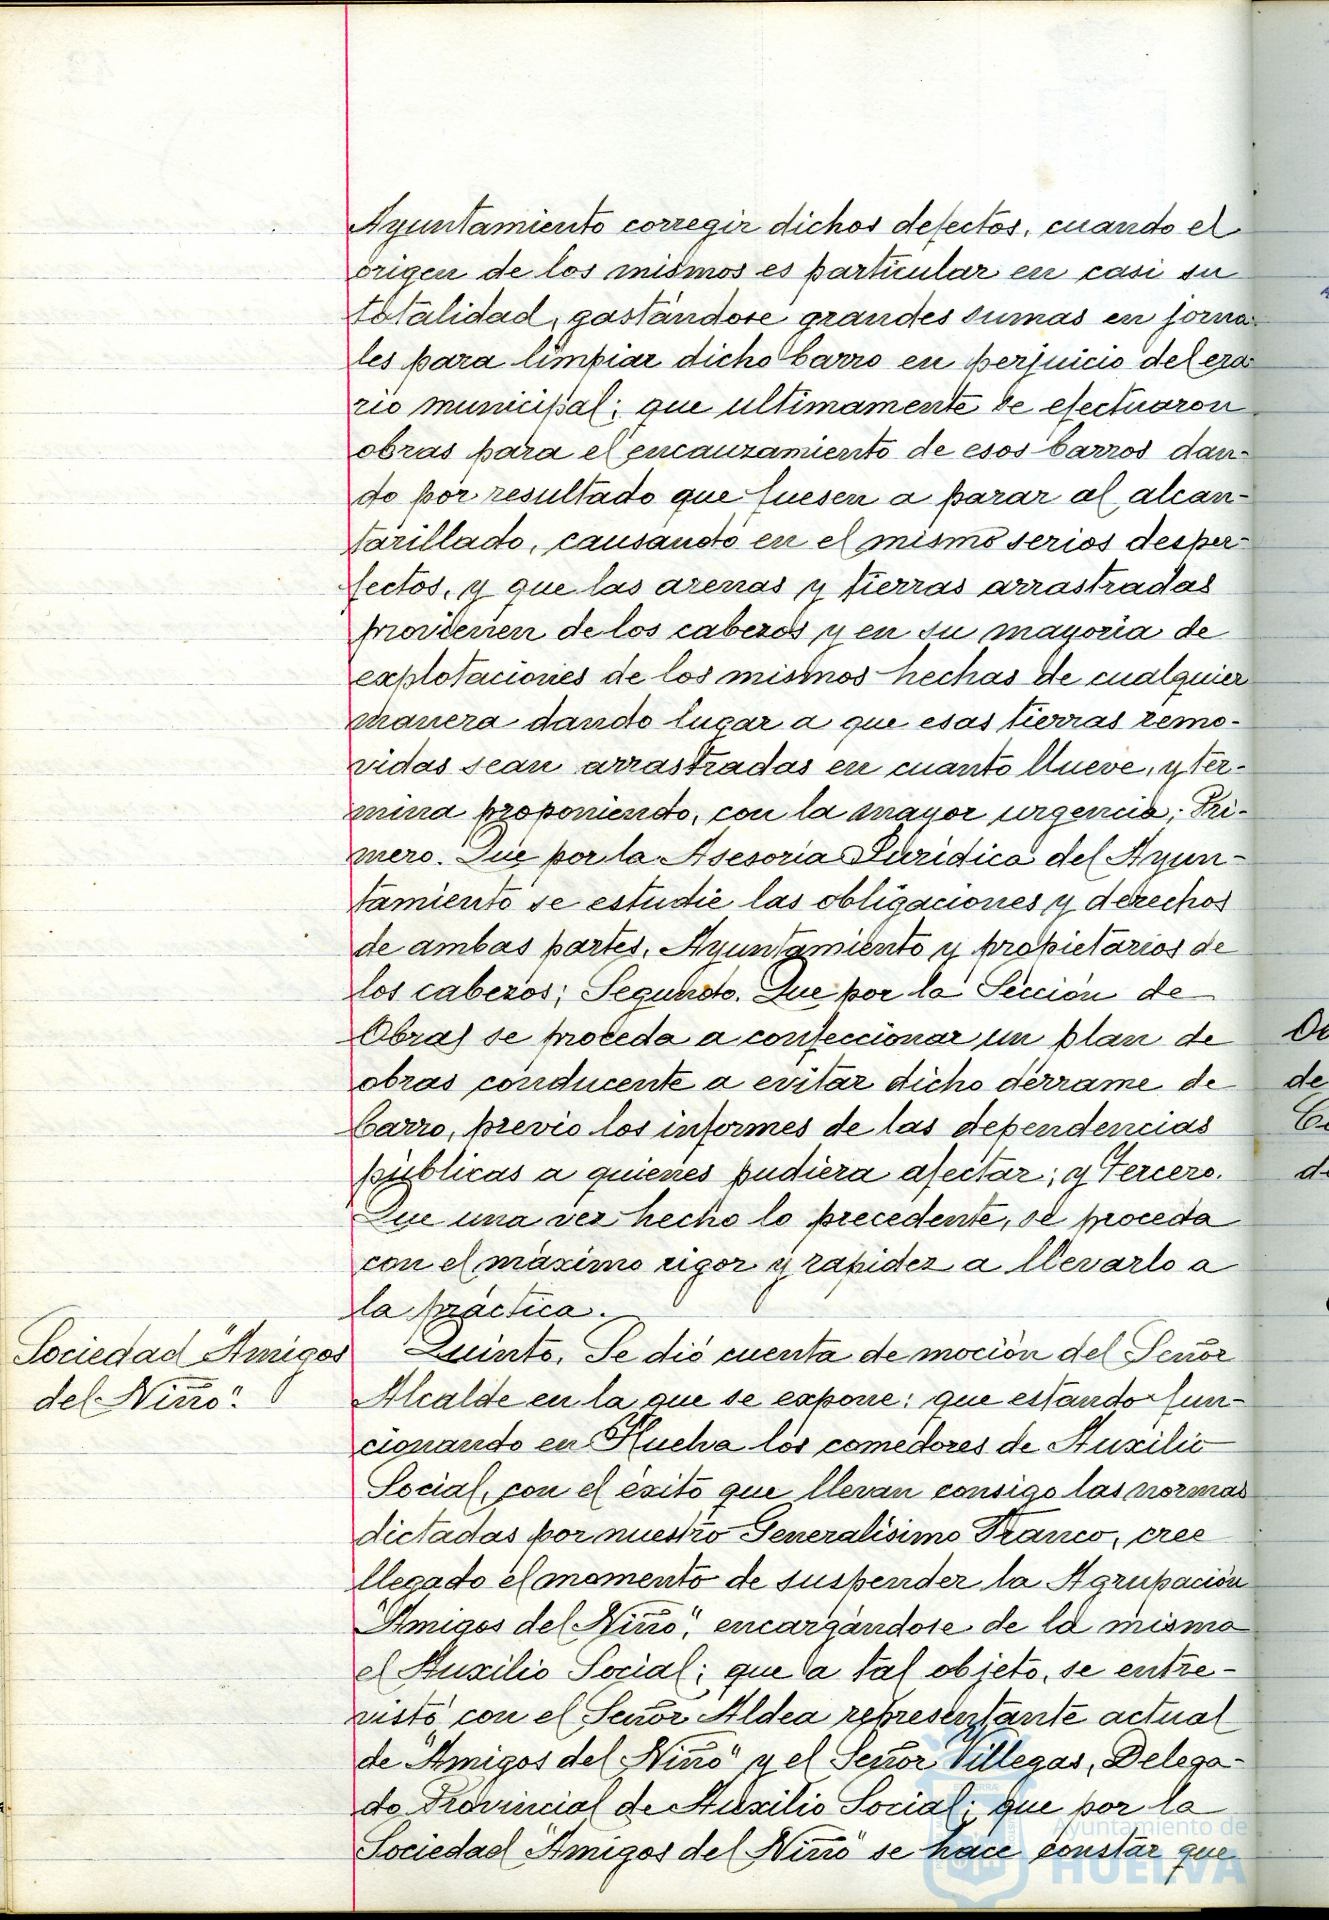 Ayuntamiento corregir dichos defectos, cuando el
origen de los mismos es particular en casi su
totalidad, gastándose grandes sumas en jorna-
les para limpiar dicho barro en perjuicio del era-
rio municipal; que ultimamente se efectuaron
obras para el encauzamiento de esos barros dan-
do por resultado que fuesen a parar al alcan-
tarillado, causando en el mismo serios desper-
fectos, y que las arenas y tierras arrastradas
provienen de los cabezos y en su mayoria de
explotaciones de los mismos hechas de cualquier
manera dando lugar a que esas tierras remo-
vidas sean arrastradas en cuanto llueve, y ter-
mina proponiendo, con la mayor urgencia; Pri-
mero. Que por la Asesoría Jurídica del Ayun-
tamiento se estudie las obligaciones y derechos
de ambas partes, Ayuntamiento y propietarios de
los cabezos; Segundo. Que por la Sección de
Obras se proceda a confeccionar un plan de
obras conducente a evitar dicho derrame de
barro, previo los informes de las dependencias
públicas a quienes pudiera afectar; y Tercero.
Que una vez hecho lo precedente, se proceda
con el máximo rigor y rapidez a llevarlo a
la práctica.
Sociedad "Amigos
del Niño".
Quinto. Se dió cuenta de moción del Señor
Alcalde en la que se expone: que estando fun-
cionando en Huelva los comedores de Auxilio
Social, con el éxito que llevan consigo las normas
dictadas por nuestro Generalísimo Franco, cree
llegado el momento de suspender la Agrupación
"Amigos del Niño", encargándose de la misma
el Auxilio Social; que a tal objeto, se entre-
vistó con el Señor Aldea representante actual
de "Amigos del Niño" y el Señor Villegas, Delega-
do Provincial de Auxilio Social; que por la
Sociedad "Amigos del Niño" se hace constar que
Ayuntamiento de
HUELVA